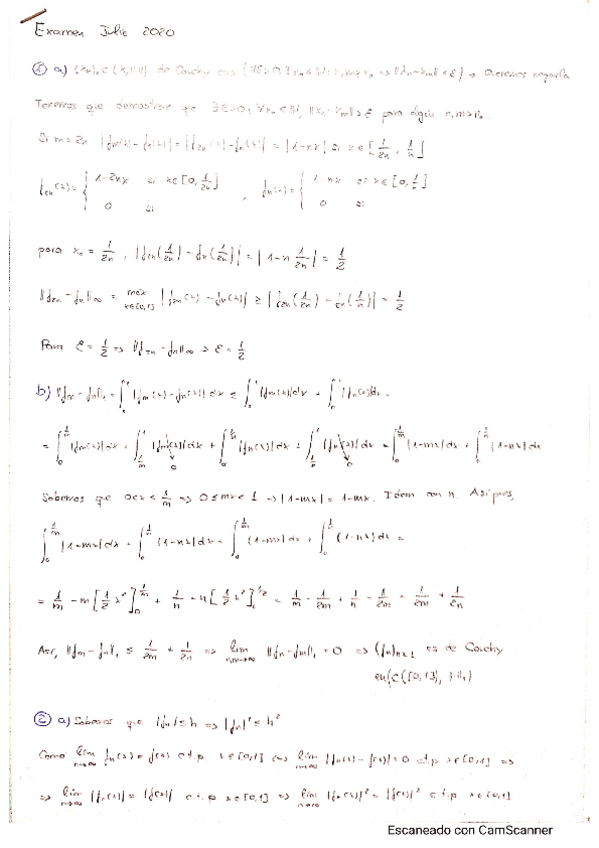 Examen Julio 2020
① a) (xₙ)ₙ ⊂ (X, ‖·‖) de Cauchy → Queremos negarla
Tenemos que demostrar que ∃ε>0, para algún n,m>n₀.
Si m=2n |f_m(x)-f_n(x)| = |f_2n(x)-f_n(x)| = |1-nx| si x∈[1/2n, 1/n]
f_2n(x) = { 1-2nx si x∈[0, 1/2n] , f_n(x) = { 1-nx si x∈[0, 1/n]
0 si 0 si
para x₀ = 1/2n , |f_2n(1/2n) - f_n(1/2n)| = |1-n 1/2n| = 1/2
‖f_2n - f_n‖∞ = max x∈[0,1] |f_2n(x) - f_n(x)| ≥ |f_2n(1/2n) - f_n(1/2n)| = 1/2
Para ε = 1/2 ⇒ ‖f_2n - f_n‖∞ ≥ ε = 1/2
b) ‖f_m - f_n‖₁ = ∫₀¹ |f_m(x) - f_n(x)| dx ≤ ∫₀¹ |f_m(x)| dx + ∫₀¹ |f_n(x)| dx =
= ∫₀^{1/m} |f_m(x)| dx + ∫_{1/m}^1 |f_m(x)| dx + ∫₀^{1/n} |f_n(x)| dx + ∫_{1/n}^1 |f_n(x)| dx = ∫₀^{1/m} |1-mx| dx + ∫₀^{1/n} |1-nx| dx
0 0
Sabemos que 0≤x<1/m ⇒ 0≤mx<1 ⇒ |1-mx| = 1-mx. Idem con n. Así pues,
∫₀^{1/m} |1-mx| dx + ∫₀^{1/n} |1-nx| dx = ∫₀^{1/m} (1-mx) dx + ∫₀^{1/n} (1-nx) dx =
= 1/m - m[1/2 x²]₀^{1/m} + 1/n - n[1/2 x²] = 1/m - 1/2m + 1/n - 1/2n = 1/2m + 1/2n
Así, ‖f_m - f_n‖₁ ≤ 1/2m + 1/2n ⇒ lim ‖f_n - f_m‖₁ = 0 ⇒ (f_n)n≥1 es de Cauchy
en (C([0,1]), ‖·‖₁)
② a) Sabemos que |f_n| ≤ h ⇒ |f_n|² ≤ h²
Como lim n→∞ f_n(x) = f(x) c.t.p. x∈[0,1] ⇔ lim n→∞ |f_n(x) - f(x)| = 0 c.t.p. x∈[0,1] ⇒
⇒ lim n→∞ |f_n(x)| = |f(x)| c.t.p. x∈[0,1] ⇒ lim n→∞ |f_n(x)|² = |f(x)|² c.t.p. x∈[0,1]
Escaneado con CamScanner